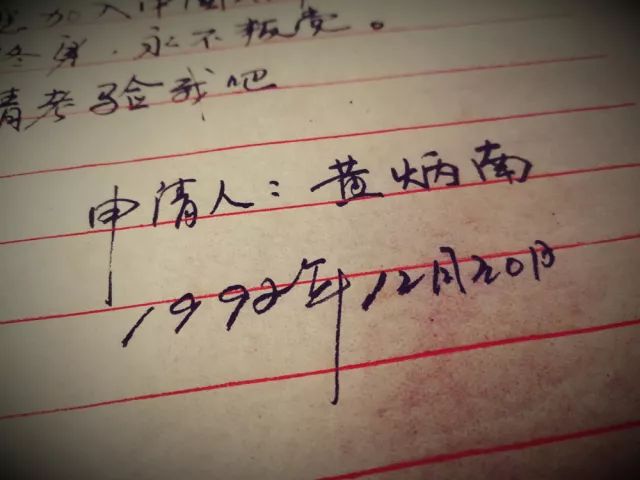 加入中国
终身，永不叛党。
请考验我吧
申请人：黄炳南
1992年12月20日